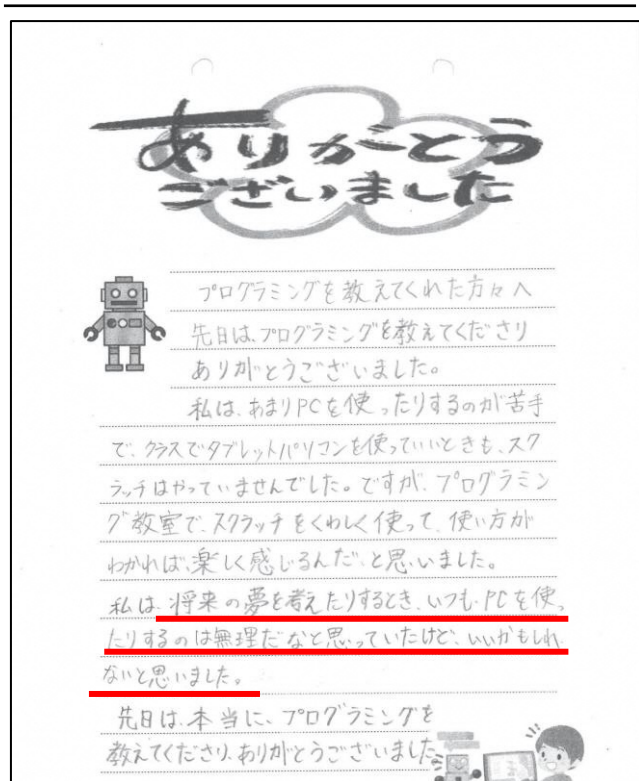 ありがとう
ございました
プログラミングを教えてくれた方々へ
先日は、プログラミングを教えてくださり
ありがとうございました。
私は、あまりPCを使ったりするのが苦手
で、クラスでタブレットパソコンを使っていいときも、スク
ラッチはやっていませんでした。ですが、プログラミン
グ教室で、スクラッチをくわしく使って、使い方が
わかれば、楽しく感じるんだ、と思いました。
私は、将来の夢を考えたりするとき、いつも、PCを使っ
たりするのは無理だなと思っていたけど、いいかもしれ
ないと思いました。
先日は、本当に、プログラミングを
教えてくださり、ありがとうございました